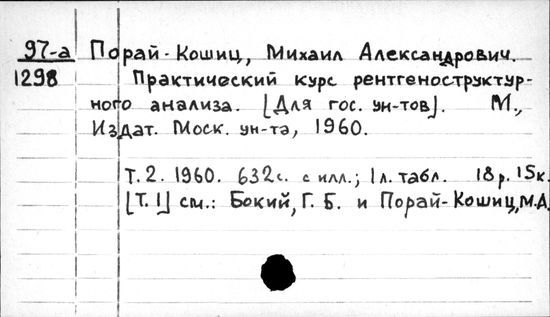 97-а Порай-Кошиц, Михаил Александрович.
1298 Практический курс рентгеноструктур-
ного анализа. [Для гос. ун-тов]. М.,
Издат. Моск. ун-та, 1960.
Т. 2. 1960. 632с. с илл.; 1л. табл. 18р. 15к.
[Т. 1] см.: Бокий, Г. Б. и Порай-Кошиц, М.А.